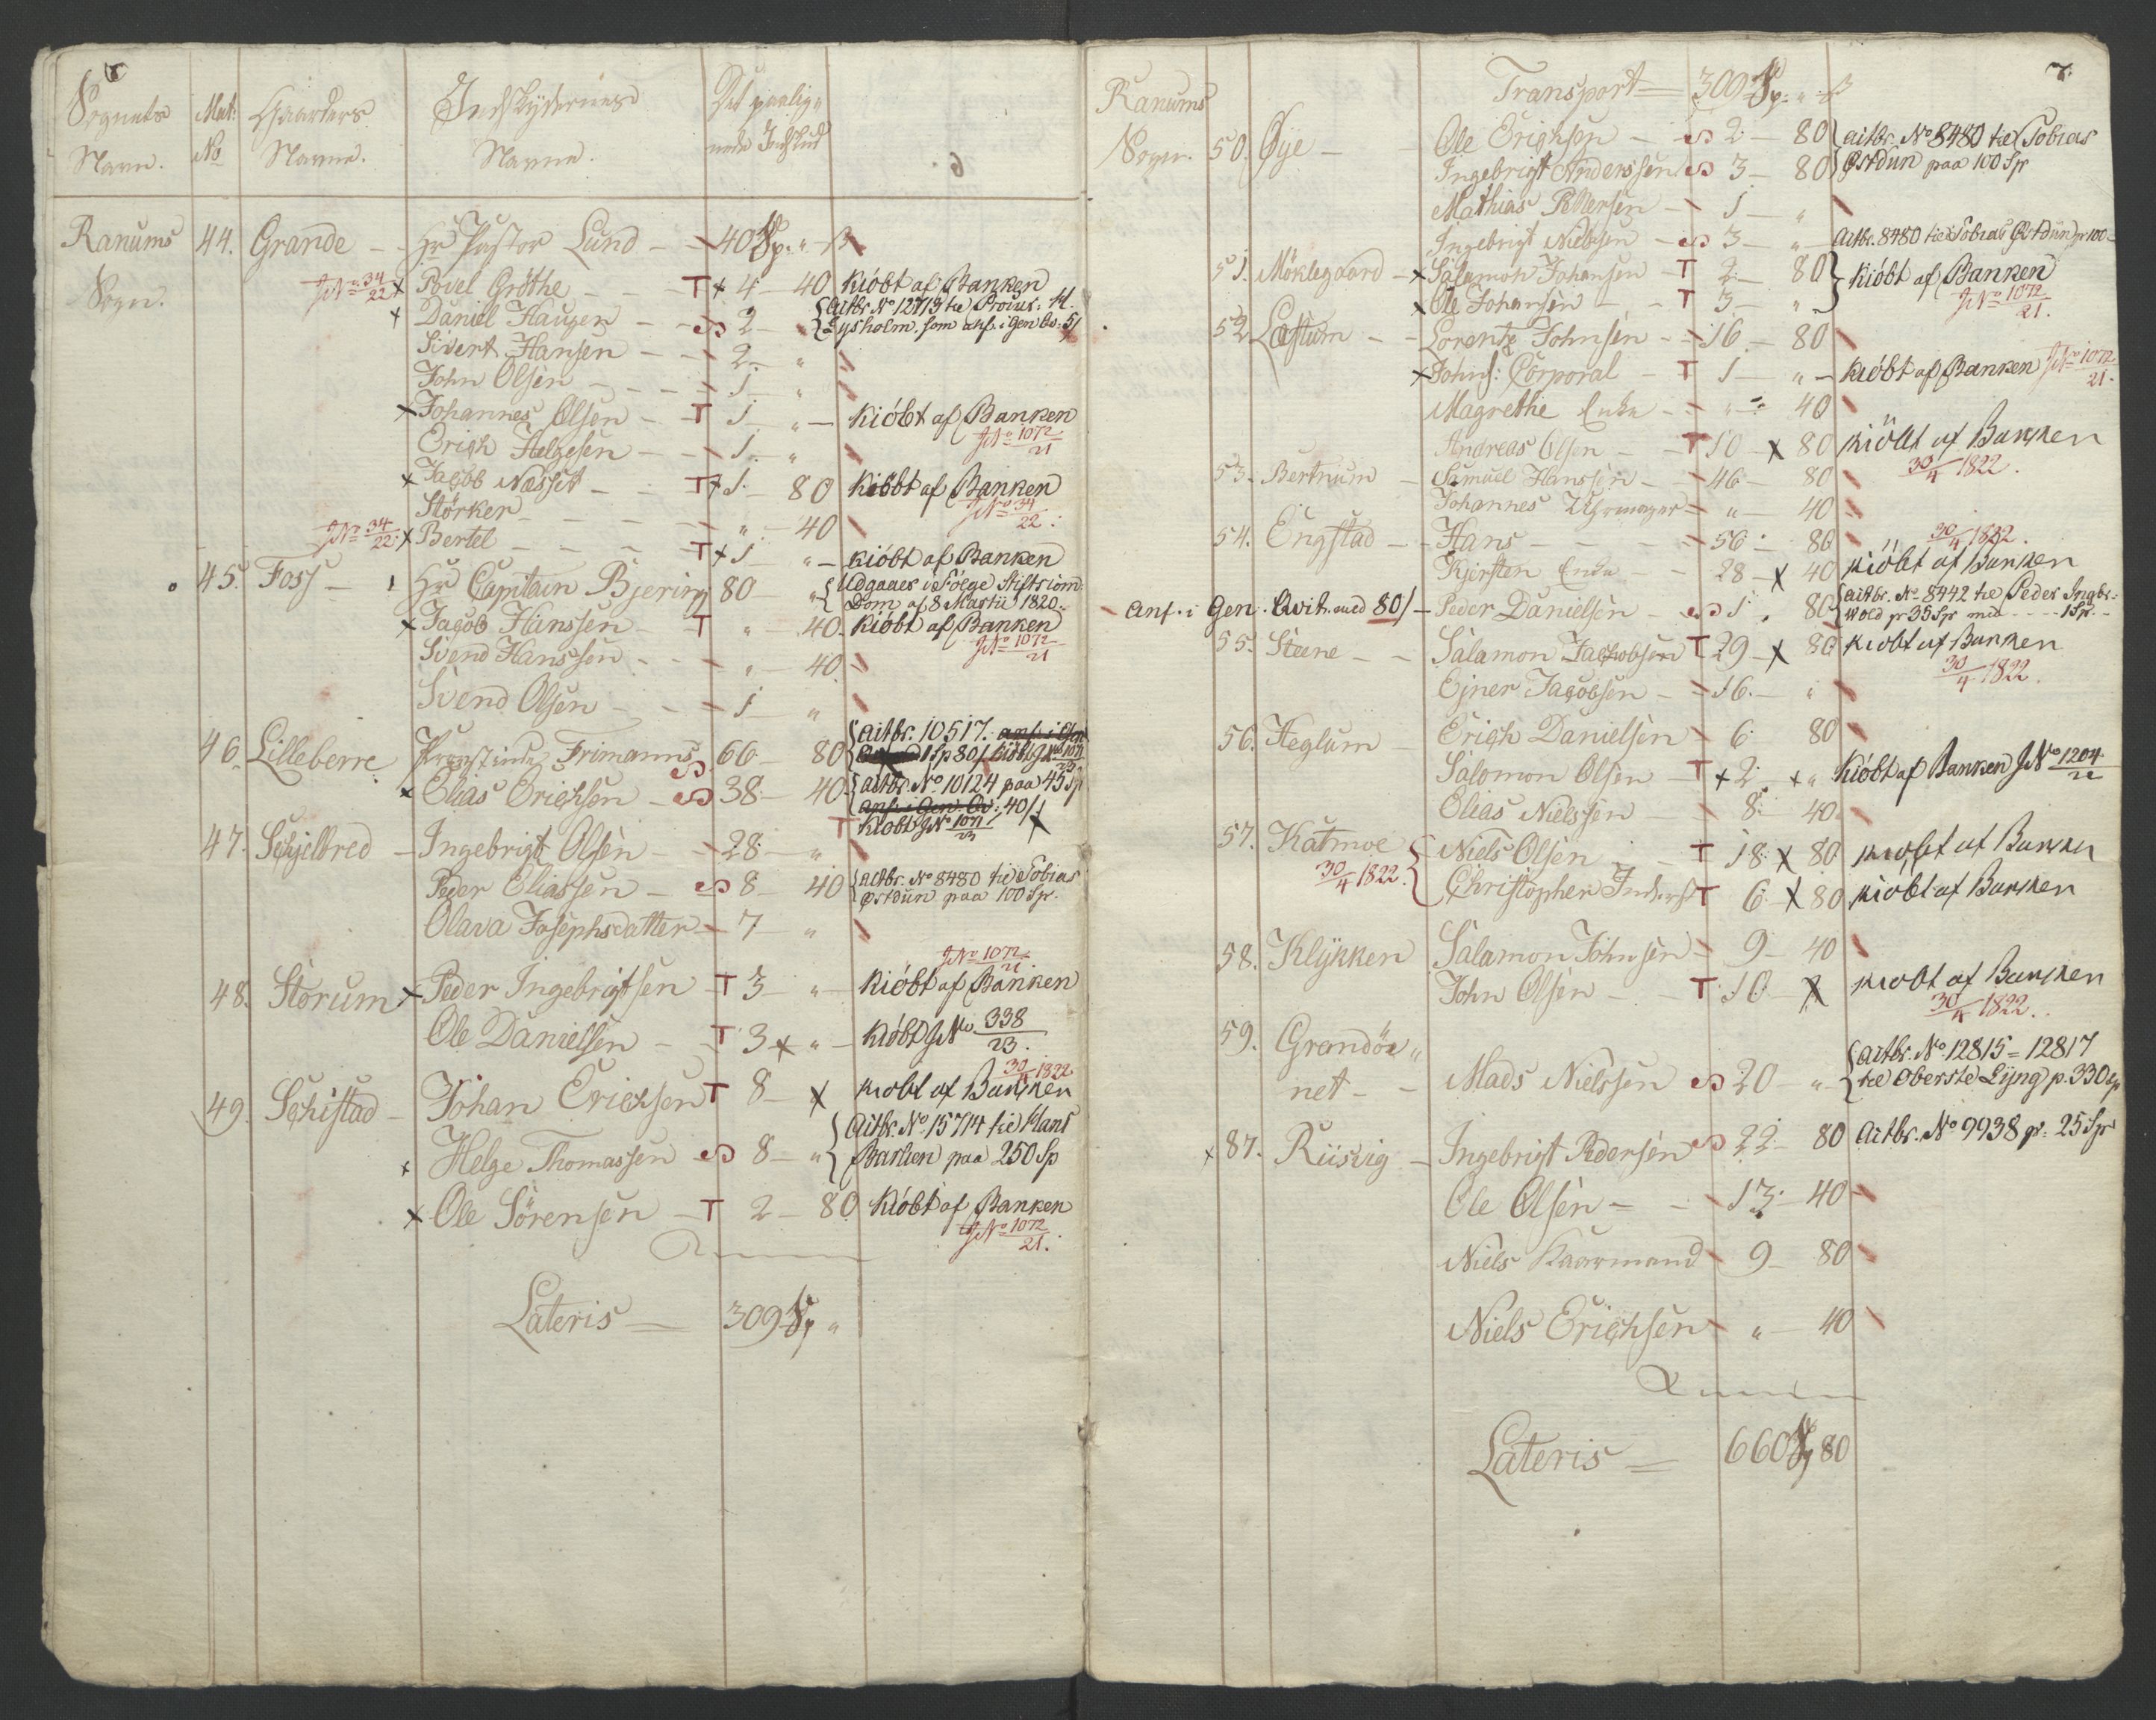 Sognets Navn. Mat: No Gaardens Navne. Indskydernes Navne. Det paalignede Indskud
Ranums Sogn. 44. Grande – Hr Pastor Lund – 40 Sp. „ ß
JNo 34/22 x Povel Gröthe – T x 4 – 40 Kióbt af Banken
x Daniel Haugen – 2 – „ {Actbr. No 12713 til Provst: H. Lysholm. som anf. i Gen Qv: 51
Sivert Hansen – 2 – „
John Olsen – 1 „
x Johannes Olsen – T 1 „ – Kióbt af Banken
JNo 1072/21
Erich Helgesen – 1 „
x Jacob Nesset – T x 1 – 80 Kióbt af Banken
JNo 34/22
Störker – „ – 40
JNo 34/22 x Bertel – T x 1 „ – Kióbt af Banken
45. Foss – Hr Capitain Bjering 80 – „ {Udgaaer i Fölge Stiftsiom
Dom af 8 Martii 1820.
x Jacob Hanssen – T „ – 40 Kióbt af Banken
JNo 1072/21
Svend Hanssen – „ – 40
Svend Olsen – 1 – „
46. Lilleberre Frimanns 66 – 80 {Actbr. 10517. anf. i Gen
1 Sp 80 ß Kióbt JNo 1071/23
x Elias Erichsen – 38 – 40 {Actbr. No 10124 paa 45 Sp
anf. i Gen. Qv: 40 ß
T Kióbt JNo 1071/23 x
47. Schjelbred – Ingebrigt Olsen – 28 – „
Peder Eliassen – 8 – 40 {Actbr. No 8480 til Tobias
Østdun paa 100 Sp.
Olava Josephsdatter – 7 – „
JNo 1072/21
48. Storum x Peder Ingebrigtsen – T 3 – „ – Kióbt af Banken
Ole Danielsen – T 3 x „ – Kióbt JNo 338/23.
30/4 1822
49. Schistad – Johan Erichsen T 8 – x kiobt af Banken
x Helge Thomassen 8 – „ {Actbr. No 15714 til Hans
Barlien paa 250 Sp
x Ole Sörensen – T 2 – 80 Kióbt af Banken
JNo 1072/21.
Lateris = 309 Sp „
7.
Ranums Sogn. Transport = 309 Sp. „ ß
50. Øye – Ole Erichsen – 2 – 80 {Actbr. No 8480 til Tobias
Ingebrigt Anderssen 3 – 80 {Østdun paa 100 Sp
Mathias Pettersen – 1 – „
Ingebrigt Nielssen – 3 – „ – Actbr. 8480 til Tobias Østdun pr 100 –
51. Möklegaard – x Salamon Johansen – T 2 – 80 } Kióbt af Banken
x Ole Johansen – T 3 „ } JNo 1072/21.
52. Læstum – Lorentz Johnsen – 16 – 80
x Johns: Corporal – T 1 – „ – Kióbt af Banken JNo 1072/21.
Magrethe Enke – „ – 40
Andreas Olsen – T 10 – x 80 kióbt af Banken
30/4 1822.
53. Bertnum – Samuel Hanssen – 46 – 80
Johannes Uhrmager – „ – 40
54. Engstad – Hans – 56 – 80 30/4 1822.
Kjersten Enke – 28 – x 40 kióbt af Banken
anf. i Gen. Qvit. med 80 ß – Peder Danielsen – 1 „ 80 {Actbr. No 8442 til Peder Ingbr:
Wold pr 35 Sp med – – – 1 Sp. –
55. Steene – Salamon Jachobsen T 29 – x 80 kiobt af Banken
30/4 1822.
Ejner Jacobsen – 16 – „
56. Heglum – Erich Danielsen – 6 80
Salomon Olsen – T x 2 – x „ Kióbt af Banken JNo 1204/22
Elias Nielssen 8 – 40
57. Katmoe { Niels Olsen – T 18 x 80 kiobt af Banken
30/4 1822. Christopher T 6 – x 80 kiobt af Banken
58. Klykken Salamon Johnsen – 9 – 40
John Olsen – T 10 – x kiobt af Banken
30/4 1822.
59. Grandöe„
net – Mads Nielssen 20 – „ {Actbr. No 12815 = 12817
til Oberste Lyng p. 330 Sp
x 87. Riisvig – Ingebrigt Pedersen 22 – 80 Actbr. No 9938 pr. 25 Sp
Ole Olsen – 13 – 40
Niels Kaarmand 9 – 80
Niels Erichsen „ – 40
Lateris = 660 Sp 80